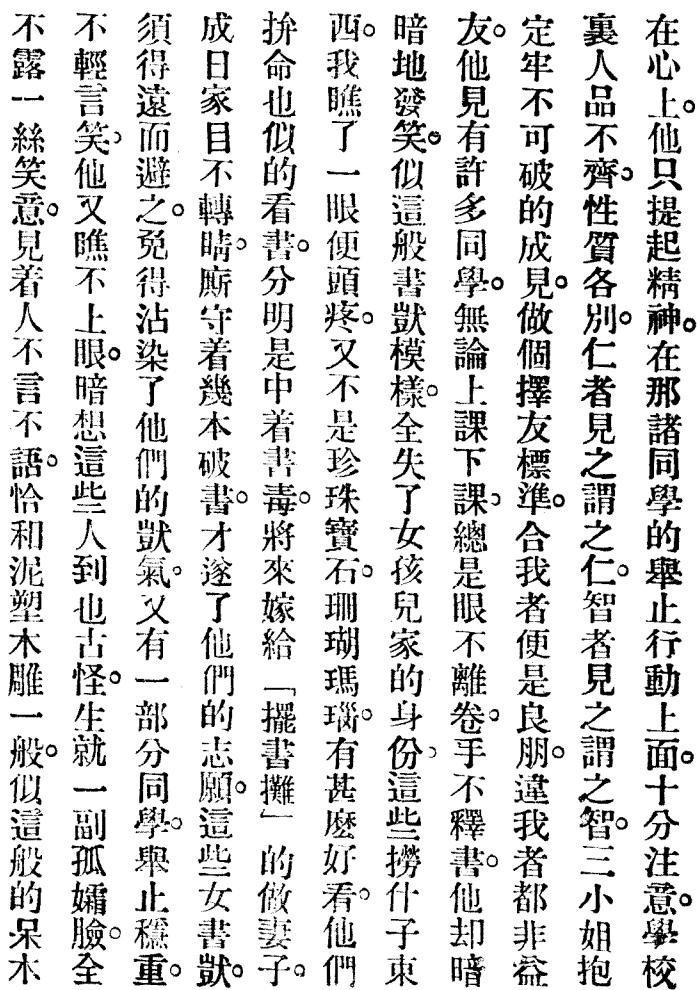 在心上。他只提起精神。在那諸同學的舉止行動上面。十分注意。學校
裏人品不齊。性質各別。仁者見之謂之仁。智者見之謂之智。三小姐抱
定牢不可破的成見。做個擇友標準。合我者便是良朋。違我者都非益
友。他見有許多同學。無論上課下課。總是眼不離卷。手不釋書。他却暗
暗地發笑。似這般書獃模樣。全失了女孩兒家的身份。這些撈什子東
西。我瞧了一眼便頭疼。又不是珍珠寶石。珊瑚瑪瑙。有甚麽好看。他們
拚命也似的看書。分明是中着書毒。將來嫁給「擺書攤」的做妻子。
成日家目不轉睛。廝守着幾本破書。才遂了他們的志願。這些女書獃。
須得遠而避之。免得沾染了他們的獃氣。又有一部分同學。舉止穩重。
不輕言笑。他又瞧不上眼。暗想這些人到也古怪。生就一副孤孀臉。全
不露一絲笑意。見着人不言不語。恰和泥塑木雕一般。似這般的呆木